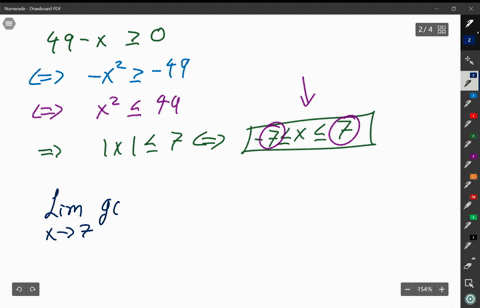 Numerade - Drawboard PDF
2 / 4
49 - x ≥ 0
⟺ -x² ≥ -49
⟺ x² ≤ 49
⟹ |x| ≤ 7 ⟺ -7 ≤ x ≤ 7
Lim g(
x→7
154%